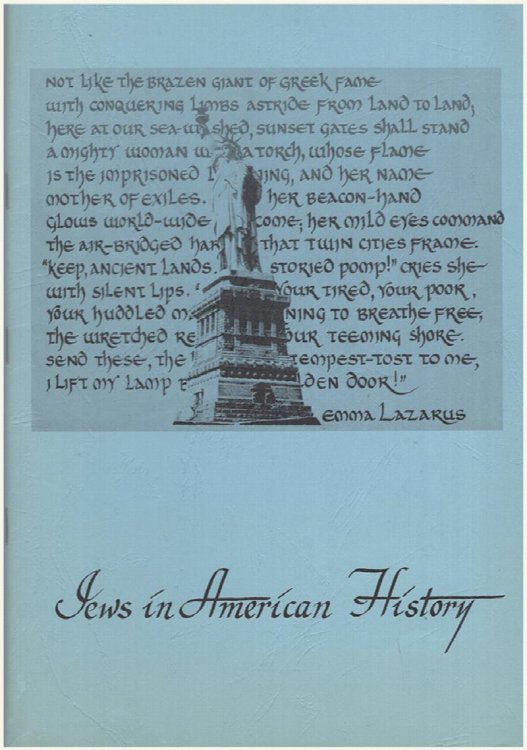 Not like the brazen giant of Greek fame
with conquering limbs astride from land to land;
here at our sea-washed, sunset gates shall stand
a mighty woman w a torch, whose flame
is the imprisoned l ning, and her name
mother of exiles. her beacon-hand
glows world-wide come; her mild eyes command
the air-bridged har that twin cities frame.
"Keep, ancient lands, storied pomp!" cries she
with silent lips. " your tired, your poor,
your huddled ma ning to breathe free,
the wretched re our teeming shore.
send these, the tempest-tost to me,
I lift my lamp b lden door!"
Emma Lazarus
Jews in American History